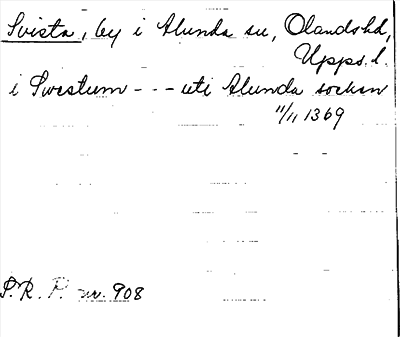 Svista, by i Alunda sn, Olandshd,
Upps. l.
i Swistum - - - uti Alunda sockun
11/11 1369
S.R.P. nr. 908